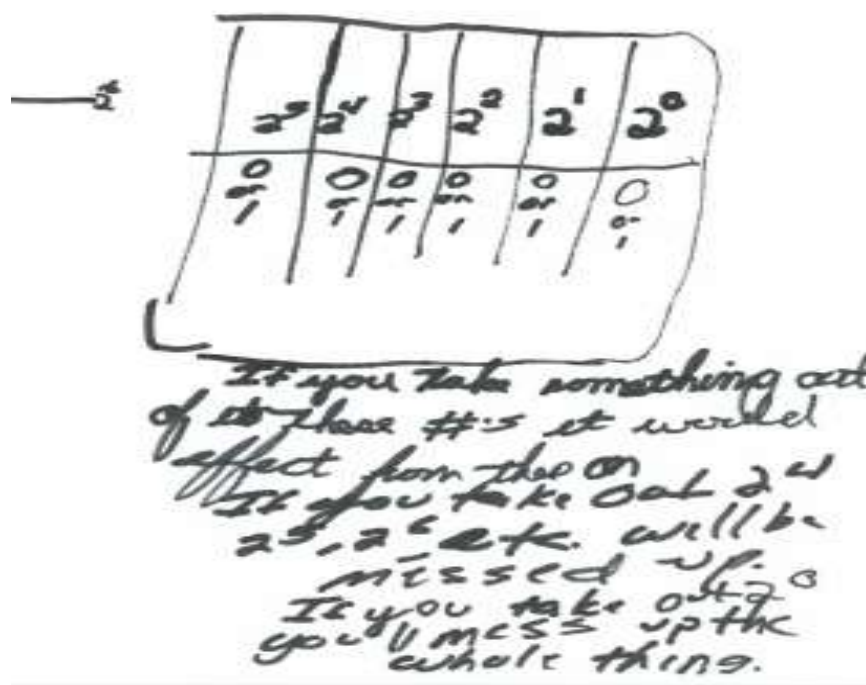 2⁶
2⁵ 2⁴ 2³ 2² 2¹ 2⁰
0 0 0 0 0 0
or or or or or or
1 1 1 1 1 1
If you take something out
of these #'s it would
effect from theo on
If you take out 2⁴
2⁵, 2⁶ etc. will be
messed up.
If you take out 2⁰
you'll mess up the
whole thing.